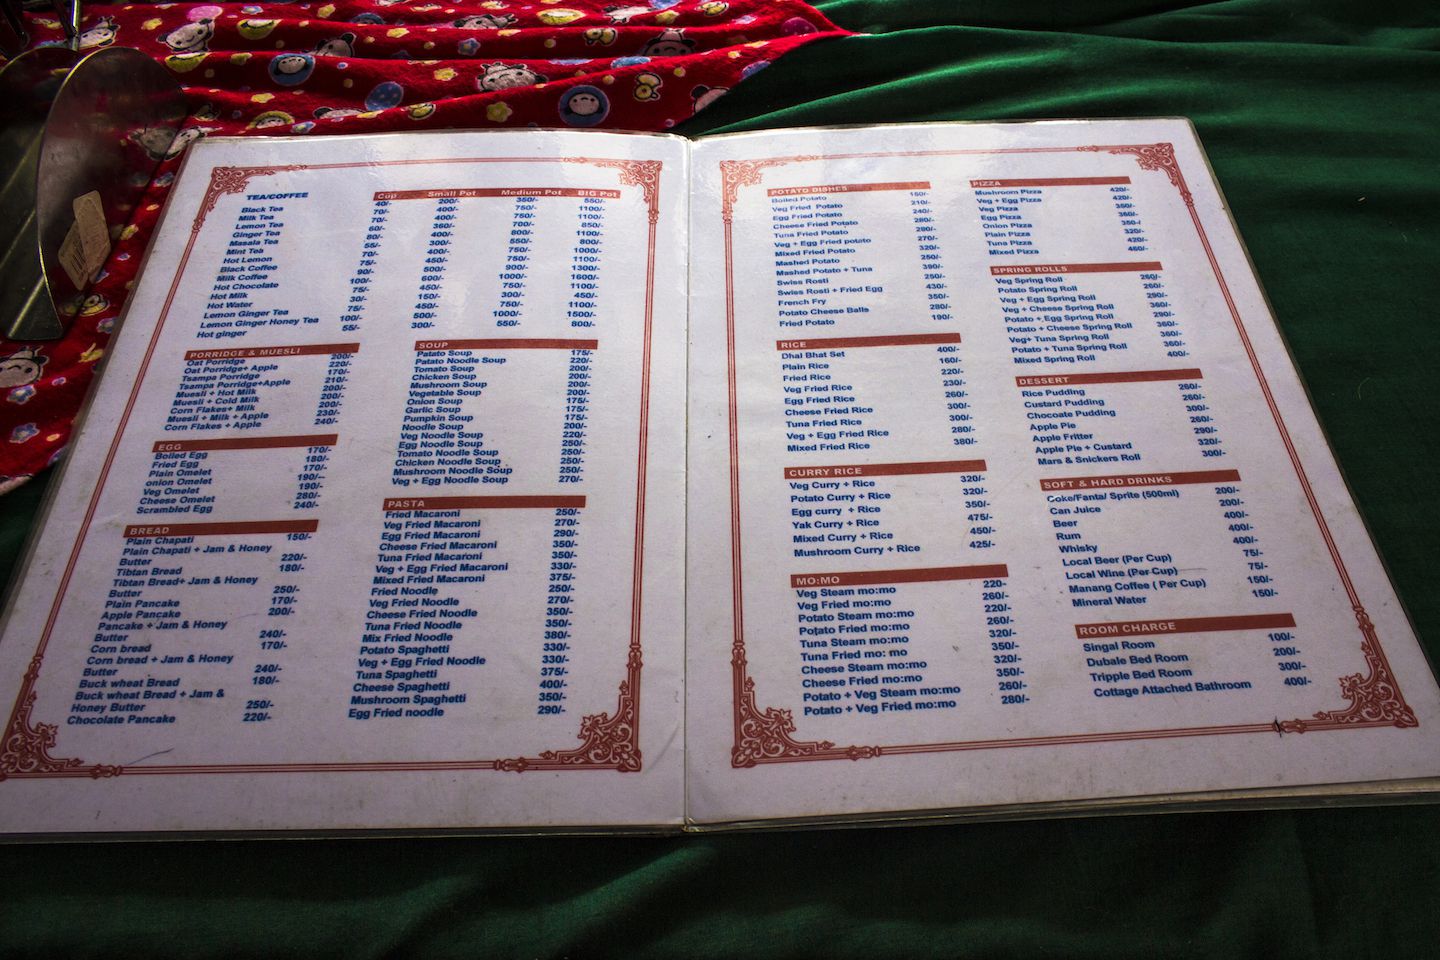 TEA/COFFEE Cup Small Pot Medium Pot BIG Pot
Black Tea 40/- 200/- 350/- 550/-
Milk Tea 70/- 400/- 750/- 1100/-
Lemon Tea 70/- 400/- 750/- 1100/-
Ginger Tea 60/- 360/- 700/- 850/-
Masala Tea 80/- 400/- 800/- 1100/-
Mint Tea 55/- 300/- 550/- 800/-
Hot Lemon 70/- 400/- 750/- 1000/-
Black Coffee 75/- 450/- 750/- 1100/-
Milk Coffee 90/- 500/- 900/- 1300/-
Hot Chocolate 100/- 600/- 1000/- 1600/-
Hot Milk 75/- 450/- 750/- 1100/-
Hot Water 30/- 150/- 300/- 450/-
Lemon Ginger Tea 75/- 450/- 750/- 1100/-
Lemon Ginger Honey Tea 100/- 500/- 1000/- 1500/-
Hot ginger 55/- 300/- 550/- 800/-
PORRIDGE & MUESLI
Oat Porridge 200/-
Oat Porridge+ Apple 220/-
Tsampa Porridge 170/-
Tsampa Porridge+Apple 210/-
Muesli + Hot Milk 200/-
Muesli + Cold Milk 200/-
Corn Flakes+ Milk 200/-
Muesli + Milk + Apple 230/-
Corn Flakes + Apple 240/-
EGG
Boiled Egg 170/-
Fried Egg 180/-
Plain Omelet 170/-
onion Omelet 190/-
Veg Omelet 190/-
Cheese Omelet 280/-
Scrambled Egg 240/-
BREAD
Plain Chapati 150/-
Plain Chapati + Jam & Honey
Butter 220/-
Tibtan Bread 180/-
Tibtan Bread+ Jam & Honey
Butter 250/-
Plain Pancake 170/-
Apple Pancake 200/-
Pancake + Jam & Honey
Butter 240/-
Corn bread 170/-
Corn bread + Jam & Honey
Butter 240/-
Buck wheat Bread 180/-
Buck wheat Bread + Jam &
Honey Butter 250/-
Chocolate Pancake 220/-
SOUP
Patato Soup 175/-
Patato Noodle Soup 220/-
Tomato Soup 200/-
Chicken Soup 200/-
Mushroom Soup 200/-
Vegetable Soup 200/-
Onion Soup 175/-
Garlic Soup 175/-
Pumpkin Soup 175/-
Noodle Soup 200/-
Veg Noodle Soup 220/-
Egg Noodle Soup 250/-
Tomato Noodle Soup 250/-
Chicken Noodle Soup 250/-
Mushroom Noodle Soup 250/-
Veg + Egg Noodle Soup 270/-
PASTA
Fried Macaroni 250/-
Veg Fried Macaroni 270/-
Egg Fried Macaroni 290/-
Cheese Fried Macaroni 350/-
Tuna Fried Macaroni 350/-
Veg + Egg Fried Macaroni 330/-
Mixed Fried Macaroni 375/-
Fried Noodle 250/-
Veg Fried Noodle 270/-
Cheese Fried Noodle 350/-
Tuna Fried Noodle 350/-
Mix Fried Noodle 380/-
Potato Spaghetti 330/-
Veg + Egg Fried Noodle 330/-
Tuna Spaghetti 375/-
Cheese Spaghetti 400/-
Mushroom Spaghetti 350/-
Egg Fried noodle 290/-
POTATO DISHES
Boiled Potato 150/-
Veg Fried Potato 210/-
Egg Fried Potato 240/-
Cheese Fried Potato 280/-
Tuna Fried Potato 280/-
Veg + Egg Fried potato 270/-
Mixed Fried Potato 320/-
Mashed Potato 250/-
Mashed Potato + Tuna 390/-
Swiss Rosti 250/-
Swiss Rosti + Fried Egg 430/-
French Fry 350/-
Potato Cheese Balls 280/-
Fried Potato 190/-
RICE
Dhal Bhat Set 400/-
Plain Rice 160/-
Fried Rice 220/-
Veg Fried Rice 230/-
Egg Fried Rice 260/-
Cheese Fried Rice 300/-
Tuna Fried Rice 300/-
Veg + Egg Fried Rice 280/-
Mixed Fried Rice 380/-
CURRY RICE
Veg Curry + Rice 320/-
Potato Curry + Rice 320/-
Egg curry + Rice 350/-
Yak Curry + Rice 475/-
Mixed Curry + Rice 450/-
Mushroom Curry + Rice 425/-
MO:MO
Veg Steam mo:mo 220-
Veg Fried mo:mo 260/-
Potato Steam mo:mo 220/-
Potato Fried mo:mo 260/-
Tuna Steam mo:mo 320/-
Tuna Fried mo: mo 350/-
Cheese Steam mo:mo 320/-
Cheese Fried mo:mo 350/-
Potato + Veg Steam mo:mo 260/-
Potato + Veg Fried mo:mo 280/-
PIZZA
Mushroom Pizza 420/-
Veg + Egg Pizza 420/-
Veg Pizza 350/-
Egg Pizza 360/-
Onion Pizza 350-/
Plain Pizza 320/-
Tuna Pizza 420/-
Mixed Pizza 460/-
SPRING ROLLS
Veg Spring Roll 260/-
Potato Spring Roll 260/-
Veg + Egg Spring Roll 290/-
Veg + Cheese Spring Roll 360/-
Potato + Egg Spring Roll 290/-
Potato + Cheese Spring Roll 360/-
Veg+ Tuna Spring Roll 360/-
Potato + Tuna Spring Roll 360/-
Mixed Spring Roll 400/-
DESSERT
Rice Pudding 260/-
Custard Pudding 260/-
Chocoate Pudding 300/-
Apple Pie 260/-
Apple Fritter 290/-
Apple Pie + Custard 320/-
Mars & Snickers Roll 300/-
SOFT & HARD DRINKS
Coke/Fanta/ Sprite (500ml) 200/-
Can Juice 200/-
Beer 400/-
Rum 400/-
Whisky 400/-
Local Beer (Per Cup) 75/-
Local Wine (Per Cup) 75/-
Manang Coffee ( Per Cup) 150/-
Mineral Water 150/-
ROOM CHARGE
Singal Room 100/-
Dubale Bed Room 200/-
Tripple Bed Room 300/-
Cottage Attached Bathroom 400/-